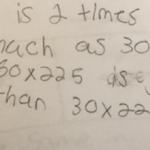 is 2 times
much as 30
60x225 is
than 30x22